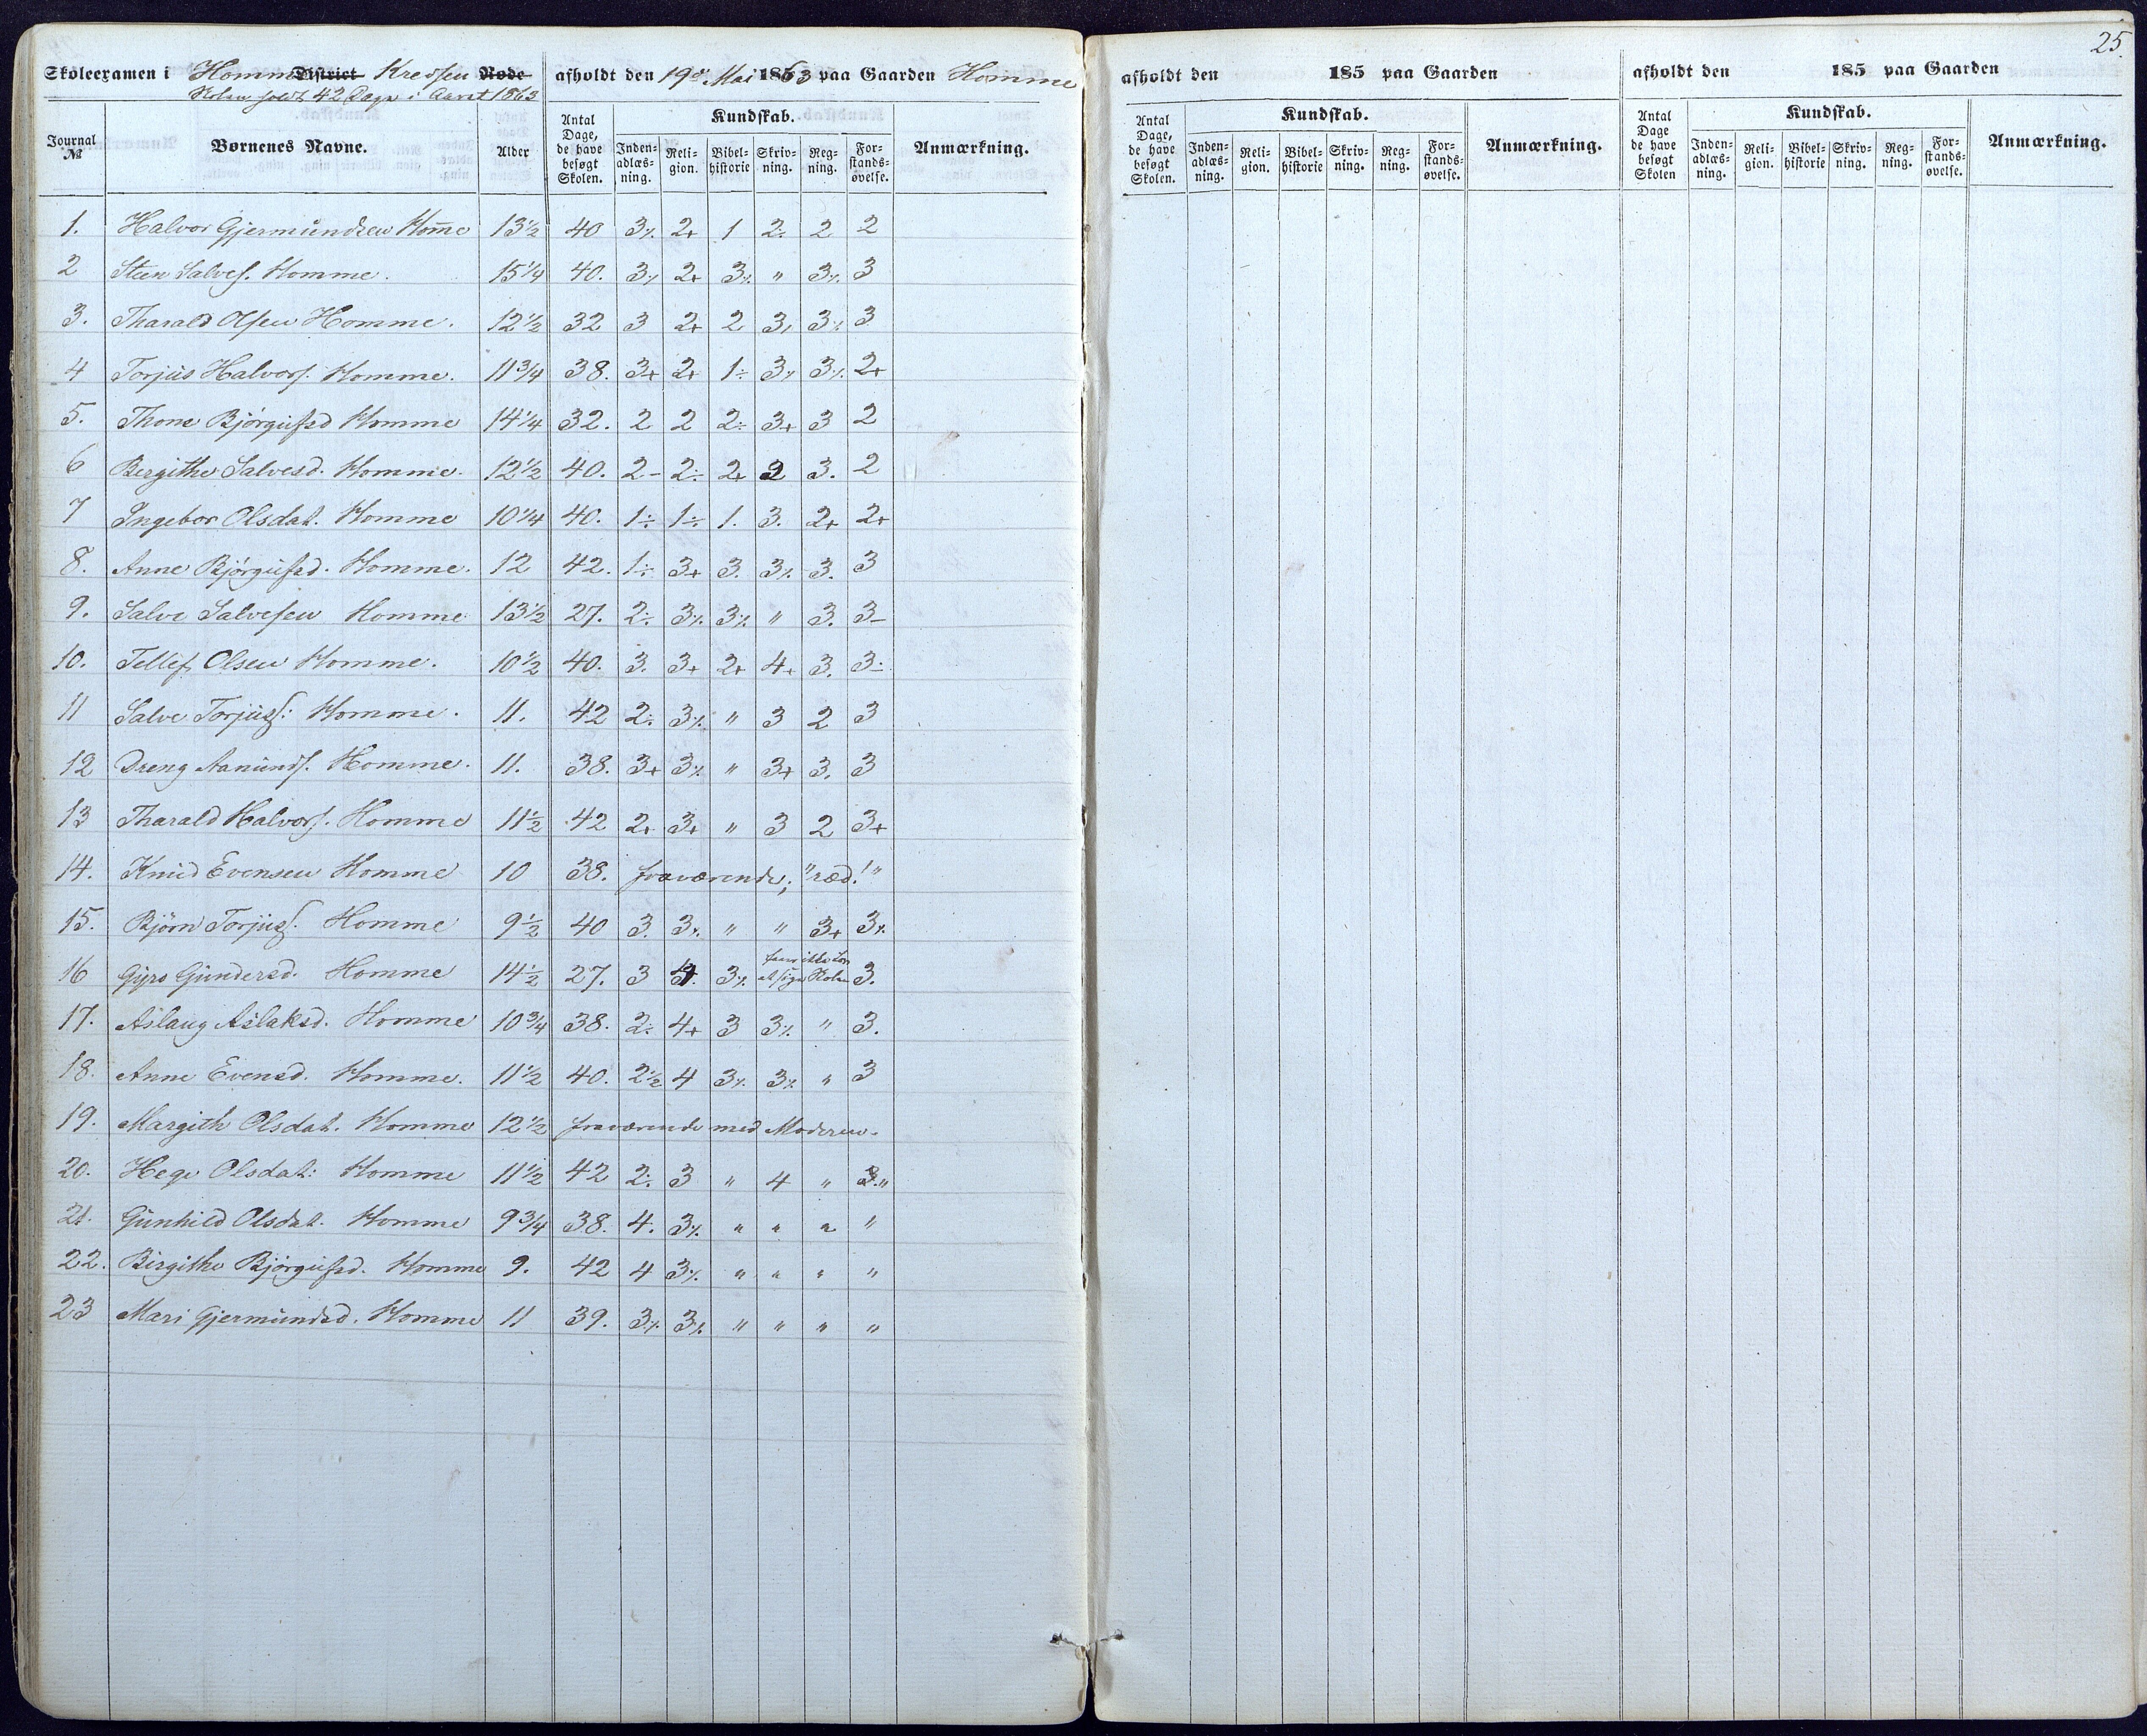 25
Skoleexamen i Homme District Kredsen Rode afholdt den 19de Mai 1863 paa Gaarden Homme
Skolen holdt 42 Dage i Aaret 1863
Journal № Børnenes Navne. Alder Antal Dage, de have besøgt Skolen. Kundskab. Inden-adlæs-ning. Reli-gion. Bibel-historie Skriv-ning. Reg-ning. For-stands-øvelse. Anmærkning.
1. Halvor Gjermundsen Homme 13½ 40 3% 2+ 1 2÷ 2 2
2 Steen Salves. Homme. 15¼ 40. 3% 2+ 3% " 3% 3
3. Tharald Olsen Homme. 12½ 32 3 2+ 2 3% 3% 3
4 Torjus Halvors. Homme. 11¾ 38. 3+ 2+ 1÷ 3% 3% 2+
5. Thone Bjørgufsd Homme 14¼ 32. 2 2 2÷ 3+ 3 2
6 Bergithe Salvesd. Homme. 12½ 40. 2- 2÷ 2+ 2 3. 2
7 Ingebor Olsdat. Homme 10¼ 40. 1÷ 1÷ 1. 3. 2+ 2+
8. Anne Bjørgufsd. Homme. 12 42. 1÷ 3+ 3. 3% 3. 3
9. Salve Salvesen Homme 13½ 27. 2÷ 3% 3% " 3. 3-
10. Tellef Olsen Homme. 10½ 40. 3. 3+ 2+ 4+ 3. 3÷
11 Salve Torjuss: Homme. 11. 42 2÷ 3% " 3 2 3
12 Dreng Aanunds. Homme. 11. 38. 3+ 3% " 3+ 3. 3
13 Tharald Halvors. Homme 11½ 42 2+ 3+ " 3 2 3+
14. Knud Evensen Homme 10 38. fraværende; "ræd!"
15. Bjørn Torjuss. Homme 9½ 40 3. 3% " " 3+ 3%
16 Gyro Gundersd. Homme 14½ 27. 3 3% at søge Skolen 3.
17. Aslaug Aslaksd. Homme 10¾ 38. 2÷ 4+ 3 3% " 3.
18. Anne Evensd. Homme. 11½ 40. 2½ 4 3% 3% " 3
19. Margith Olsdat. Homme 12½ fraværende med Moderen.
20. Hege Olsdat: Homme 11½ 42 2÷ 3 " 4 " 3."
21. Gunhild Olsdat. Homme 9¾ 38. 4. 3% " " " "
22. Birgithe Bjørgufsd. Homme 9. 42 4 3% " " " "
23 Mari Gjermundsd. Homme 11 39. 3% 3% " " " "
afholdt den 185 paa Gaarden
Antal Dage, de have besøgt Skolen. Kundskab. Inden-adlæs-ning. Reli-gion. Bibel-historie Skriv-ning. Reg-ning. For-stands-øvelse. Anmærkning.
afholdt den 185 paa Gaarden
Antal Dage de have besøgt Skolen Kundskab. Inden-adlæs-ning. Reli-gion. Bibel-historie Skriv-ning. Reg-ning. For-stands-øvelse. Anmærkning.